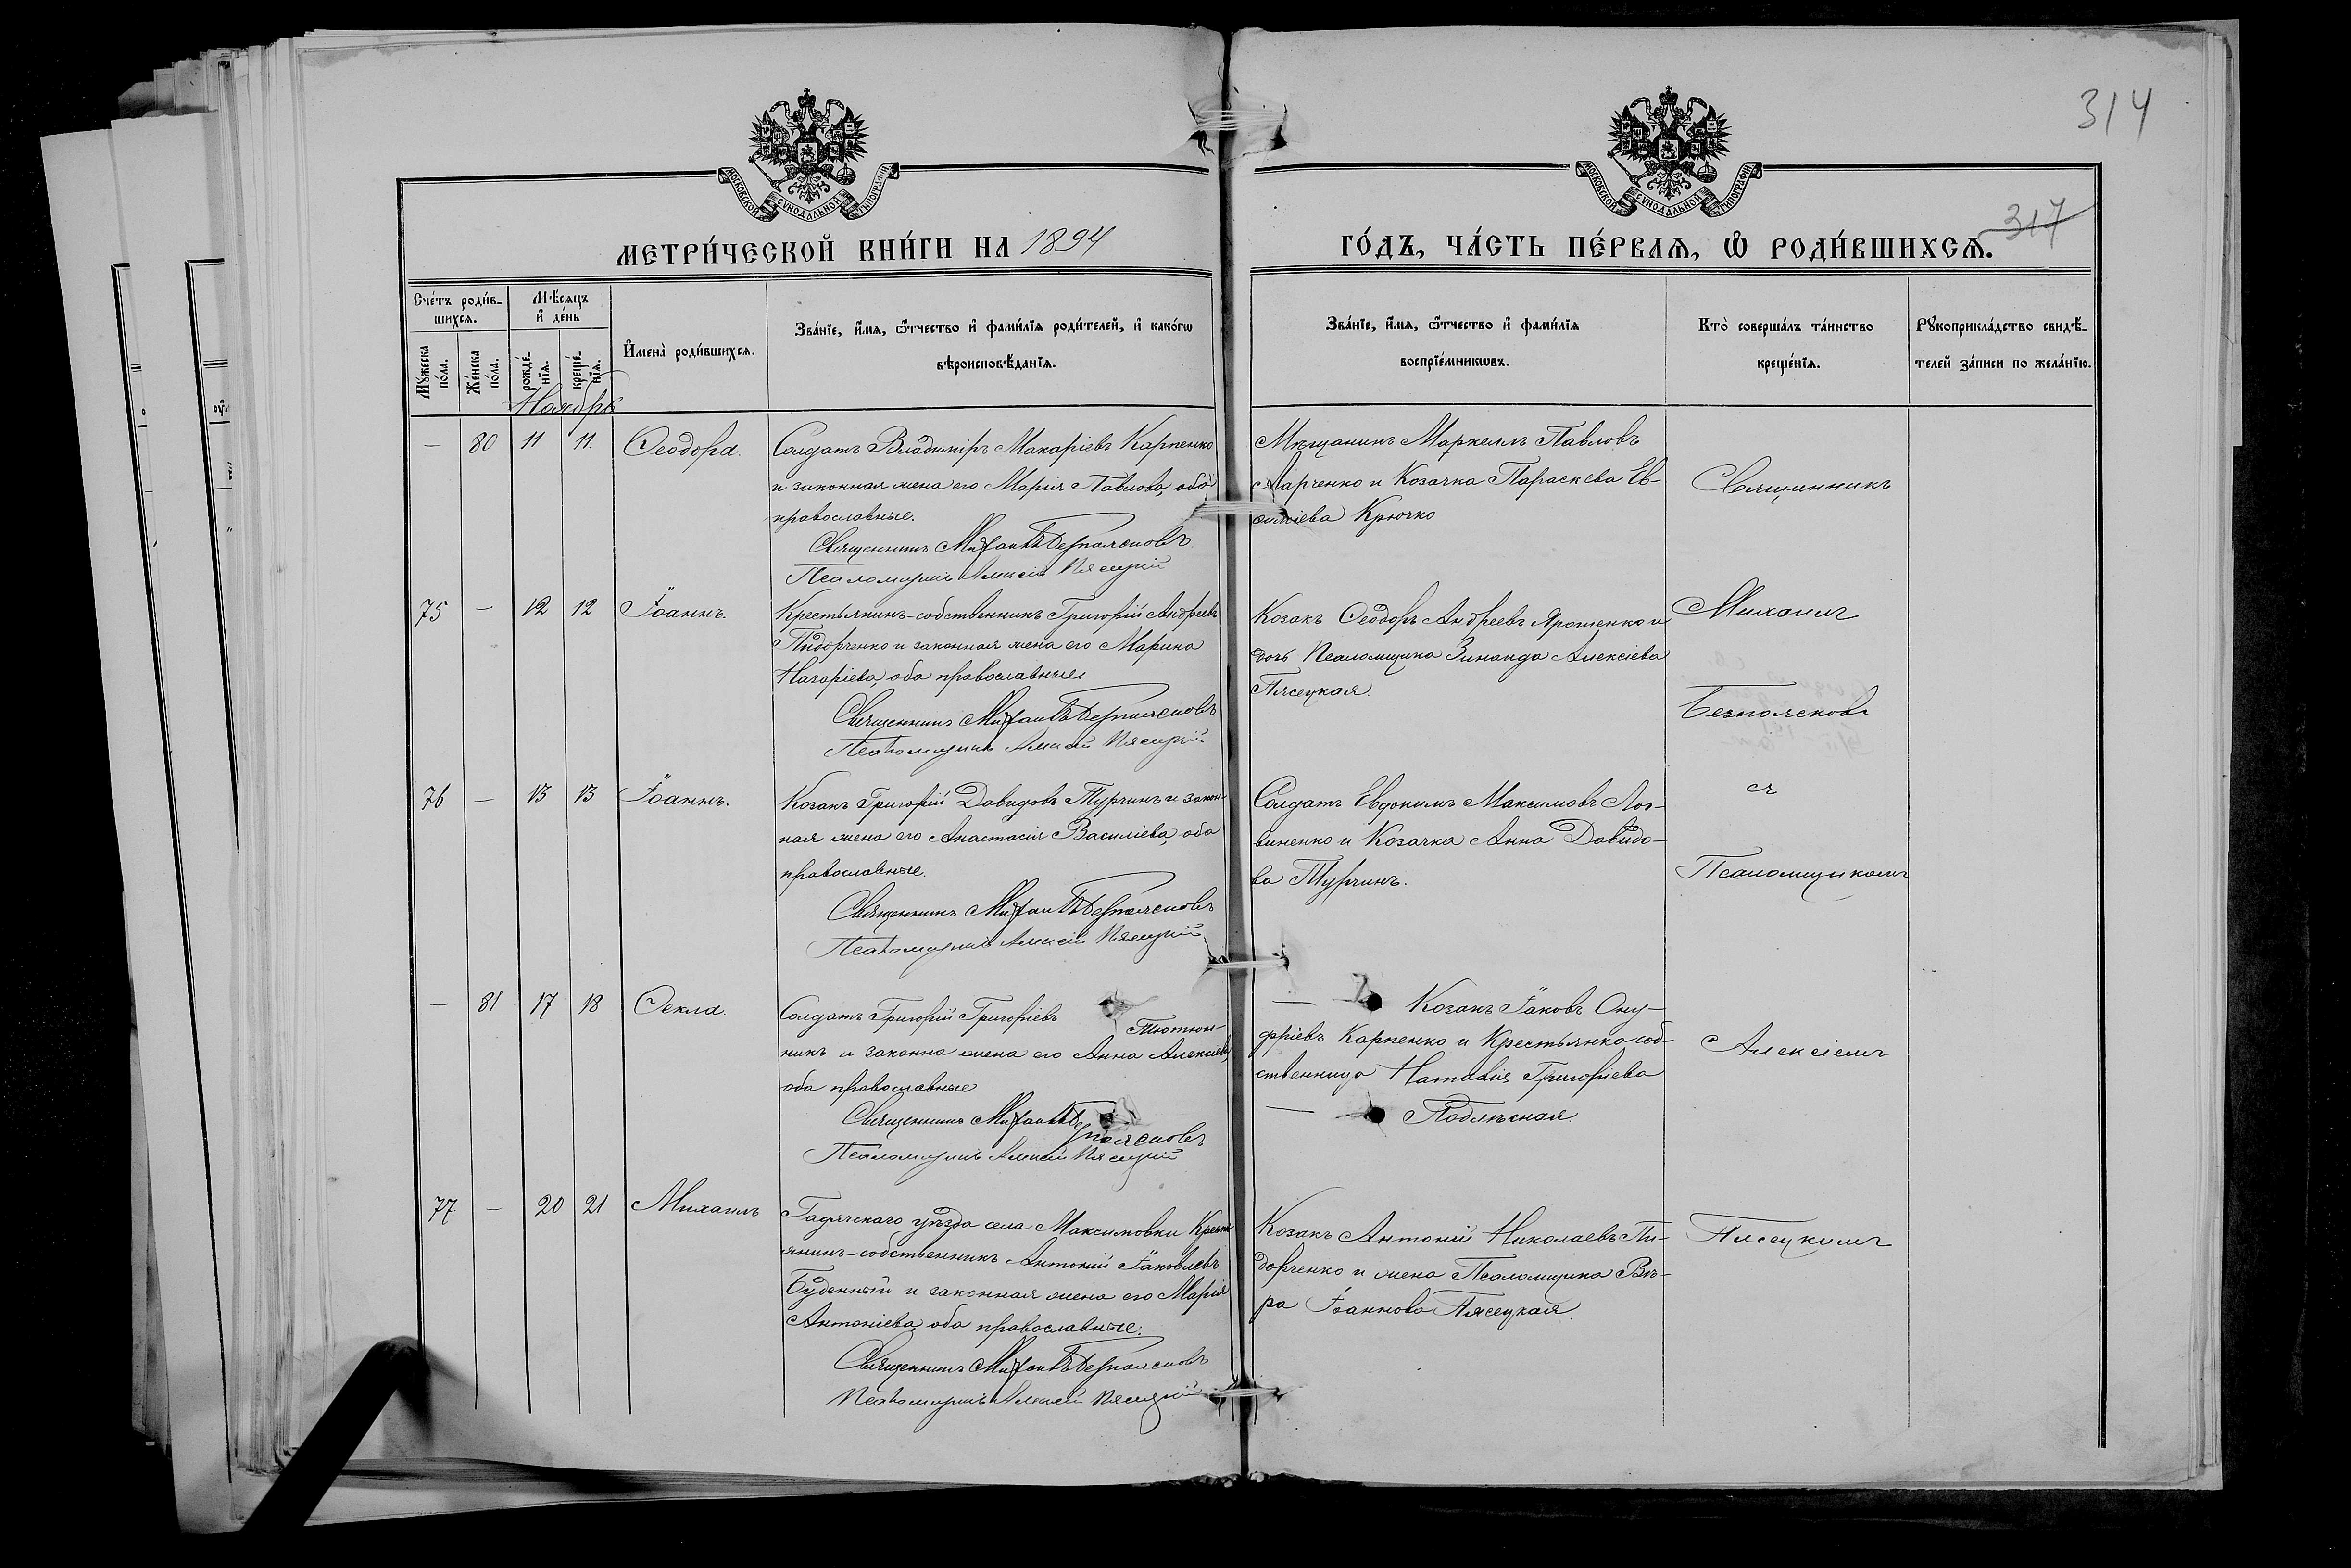 314
МОСКОВСКОЙ СѴНОДАЛЬНОЙ ТИПОГРАФІИ
МОСКОВСКОЙ СѴНОДАЛЬНОЙ ТИПОГРАФІИ
317
МЕТРИ́ЧЕСКОЙ КНИ́ГИ НА 1894
ГО́ДЪ, ЧА́СТЬ ПЕ́РВАѦ, Ѡ҆ РОДИ́ВШИХСѦ.
Сче́тъ роди́в-
шихсѧ.
Мѣ́сѧцъ
и҆ де́нь
Мꙋ́жеска
по́ла.
Же́нска
по́ла.
рожде́-
нїѧ.
креще́-
нїѧ.
И҆мена̀ роди́вшихсѧ.
Зва́нїе, и҆́мѧ, ѻ҆́тчество и҆ фами́лїѧ роди́телей, и҆ како́гѡ
вѣроисповѣ́данїѧ.
Зва́нїе, и҆́мѧ, ѻ҆́тчество и҆ фами́лїѧ
воспрїе́мникѡвъ.
Кто̀ соверша́лъ та́инство
креще́нїѧ.
Рꙋкоприкла́дство свидѣ́-
телей за́писи по жела́нїю.
Ноября
— 80 11 11. Ѳеодора.
Солдатъ Владиміръ Макаріевъ Карпенко
и законная жена его Марія Павлова, оба
православные.
Священникъ Михаилъ Безпоясковъ
Псаломщикъ Алексій Пясецкій
Мѣщанинъ Маркеллъ Павловъ
Марченко и Козачка Параскева Ев-
Крючко
Священникъ
75 — 12 12 Іоаннъ.
Крестьянинъ-собственникъ Григорій Андреевъ
Пидорченко и законная жена его Марина
Назаріева, оба православные
Священникъ Михаилъ Безпоясковъ
Псаломщикъ Алексій Пясецкій
Козакъ Ѳеодоръ Андреевъ Ярошенко и
дочь Псаломщика Зинаида Алексіева
Пясецкая.
Михаилъ
Безпоясковъ
76 — 13 13 Іоаннъ.
Козакъ Григорій Давидовъ Турчинъ и закон-
ная жена его Анастасія Василіева, оба
православные.
Священникъ Михаилъ Безпоясковъ
Псаломщикъ Алексій Пясецкій
Солдатъ Евдокимъ Максимовъ Лог-
виненко и Козачка Анна Давидо-
ва Турчинъ.
съ
Псаломщикомъ
— 81 17 18 Ѳекла.
Солдатъ Григорій Григоріевъ Тютюн-
никъ и законна жена его Анна Алексіева,
оба православные
Священникъ Михаилъ Безпоясковъ
Псаломщикъ Алексій Пясецкій
— Козакъ Іаковъ Ону-
фріевъ Карпенко и Крестьянка соб-
ственница Наталія Григоріева
— Подлѣсная.
Алексіемъ
77 — 20 21 Михаилъ
Гадячскаго уѣзда села Максимовки Кресть
янинъ-собственникъ Антоній Іаковлевъ
Буденный и законная жена его Марія
Антоніева, оба православные.
Священникъ Михаилъ Безпоясковъ
Псаломщикъ Алексій Пясецкій
Козакъ Антоній Николаевъ Пи-
дорченко и жена Псаломщика Вѣ-
ра Іоаннова Пясецкая.
Пясецкимъ